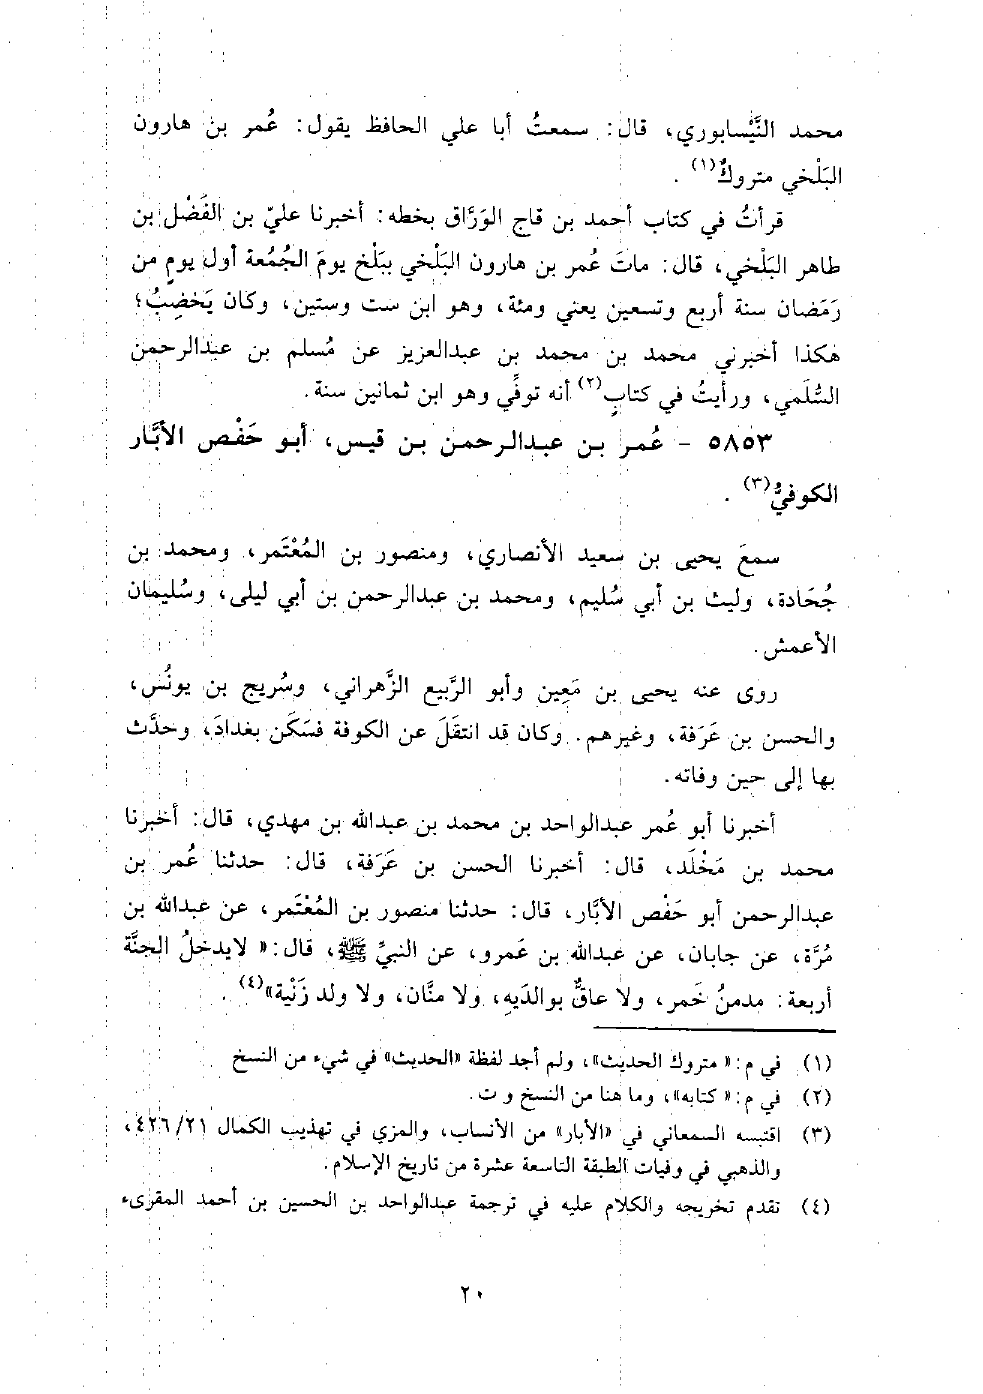 محمد النَّيْسابوري، قال: سمعتُ أبا علي الحافظ يقول: عُمر بن هارون
البَلْخي متروكٌ(١) .
قرأتُ في كتاب أحمد بن قاج الوَرَّاق بخطه: أخبرنا عليّ بن الفَضْل بن
طاهر البَلْخي، قال: ماتَ عُمر بن هارون البَلْخي ببَلْخ يومَ الجُمُعة أول يومٍ من
رَمَضان سنة أربع وتسعين يعني ومئة، وهو ابن ست وستين، وكان يَخضِبُ؛
هكذا أخبرني محمد بن محمد بن عبدالعزيز عن مُسلم بن عبدالرحمن
السُّلَمي، ورأيتُ في كتابٍ(٢) أنه توفِّي وهو ابن ثمانين سنة.
٥٨٥٣ - عُمر بن عبدالرحمن بن قيس، أبو حَفْص الأبَّار
الكوفيُّ(٣) .
سمعَ يحيى بن سعيد الأنصاري، ومنصور بن المُعْتَمر، ومحمد بن
جُحَادة، وليث بن أبي سُليم، ومحمد بن عبدالرحمن بن أبي ليلى، وسُليمان
الأعمش.
روى عنه يحيى بن مَعِين وأبو الرَّبيع الزَّهراني، وسُريج بن يونُس،
والحسن بن عَرَفة، وغيرهم. وكان قد انتقَلَ عن الكوفة فسَكَن بغدادَ، وحدَّث
بها إلى حين وفاته.
أخبرنا أبو عُمر عبدالواحد بن محمد بن عبدالله بن مهدي، قال: أخبرنا
محمد بن مَخْلَد، قال: أخبرنا الحسن بن عَرَفة، قال: حدثنا عُمر بن
عبدالرحمن أبو حَفْص الأبَّار، قال: حدثنا منصور بن المُعْتَمر، عن عبدالله بن
مُرَّة، عن جابان، عن عبدالله بن عَمرو، عن النبيِّ ﷺ، قال: « لايدخلُ الجنَّة
أربعة: مدمنُ خَمر، ولا عاقٌّ بوالدَيهِ، ولا منَّان، ولا ولد زَنْية»(٤) .
(١) في م: « متروك الحديث»، ولم أجد لفظة «الحديث» في شيء من النسخ
(٢) في م: « كتابه»، وما هنا من النسخ و ت.
(٣) اقتبسه السمعاني في «الأبار» من الأنساب، والمزي في تهذيب الكمال ٢١/ ٤٢٦،
والذهبي في وفيات الطبقة التاسعة عشرة من تاريخ الإسلام.
(٤) تقدم تخريجه والكلام عليه في ترجمة عبدالواحد بن الحسين بن أحمد المقرىء
٢٠